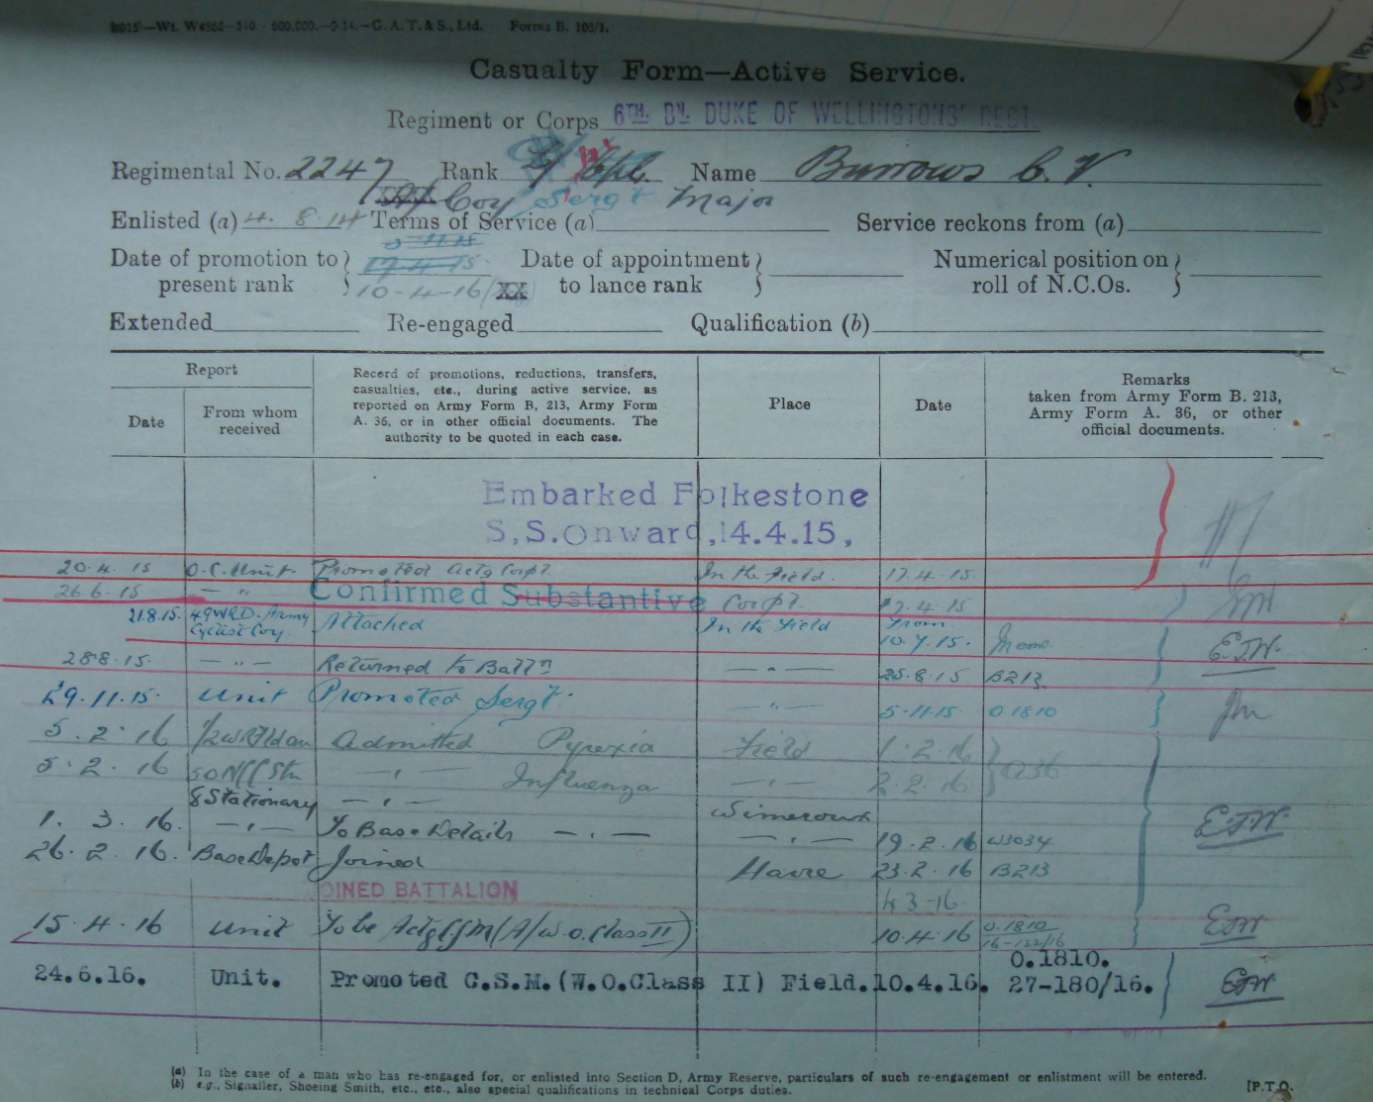 Forms B. 103/1.
Casualty Form—Active Service.
Regiment or Corps 6TH. BN. DUKE OF WELLINGTONS' REGT.
Regimental No. 2247 Rank Cpl. Name Burrows C. V.
Coy Sergt Major
Enlisted (a) 4. 8. 14 Terms of Service (a) Service reckons from (a)
5-11-15
Date of promotion to present rank 17.4.15 Date of appointment to lance rank Numerical position on roll of N.C.Os.
10-4-16 XX
Extended Re-engaged Qualification (b)
Report
Date
From whom received
Record of promotions, reductions, transfers,
casualties, etc., during active service, as
reported on Army Form B, 213, Army Form
A. 36, or in other official documents. The
authority to be quoted in each case.
Place
Date
Remarks
taken from Army Form B. 213,
Army Form A. 36, or other
official documents.
Embarked Folkestone
S.S.Onward, 14.4.15,
20.4.15 O.C. Unit. Promoted Actg Corpl. In the field. 17.4.15.
26.6.15 — " — Confirmed Substantive Corpl. 17.4.15
21.8.15. 49 W.R.D. Army Cyclist Coy. Attached In the Field From 10.7.15. Memo
28.8.15. — " — Returned to Battn — " — 25.8.15 B213
29.11.15. Unit Promoted Sergt. — " — 5.11.15 O.1810
5.2.16 Admitted Pyrexia Field 1.2.16 A36
5.2.16 — " — Influenza — " — 2.2.16
8 Stationary — " — Wimereux
1.3.16. — " — To Base Details — " — — " — 19.2.16 W3034
26.2.16. Base Depot Joined Havre 23.2.16 B213
JOINED BATTALION 3-16.
15.4.16 Unit To be Actg CSM (A/W.O. Class II) 10.4.16 O.1810
16-122/16
24.6.16. Unit. Promoted C.S.M.(W.O.Class II) Field. 10.4.16. O.1810. 27-180/16.
(a) In the case of a man who has re-engaged for, or enlisted into Section D, Army Reserve, particulars of such re-engagement or enlistment will be entered.
(b) e.g., Signaller, Shoeing Smith, etc., etc., also special qualifications in technical Corps duties.
[P.T.O.